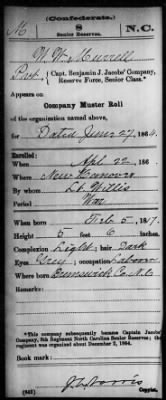 (Confederate.)
M 8 N.C.
Senior Reserves.
W W Murrell
Pvt, Capt. Benjamin J. Jacobs' Company,
Reserve Force, Senior Class.*
Appears on
Company Muster Roll
of the organization named above,
for Dated June 27, 1864.
Enrolled:
When Apl 22, 186
Where New Hanover
By whom Lt. Willis
Period War
When born Feb 5, 1817.
Height 5 feet 6 inches
Complexion Light, hair Dark
Eyes Grey; occupation Laborer
Where born Brunswick Co. N.C.
*This company subsequently became Captain Jacobs'
Company, 8th Regiment North Carolina Senior Reserves; the
regiment was organized about December 2, 1864.
Book mark:
Copyist.